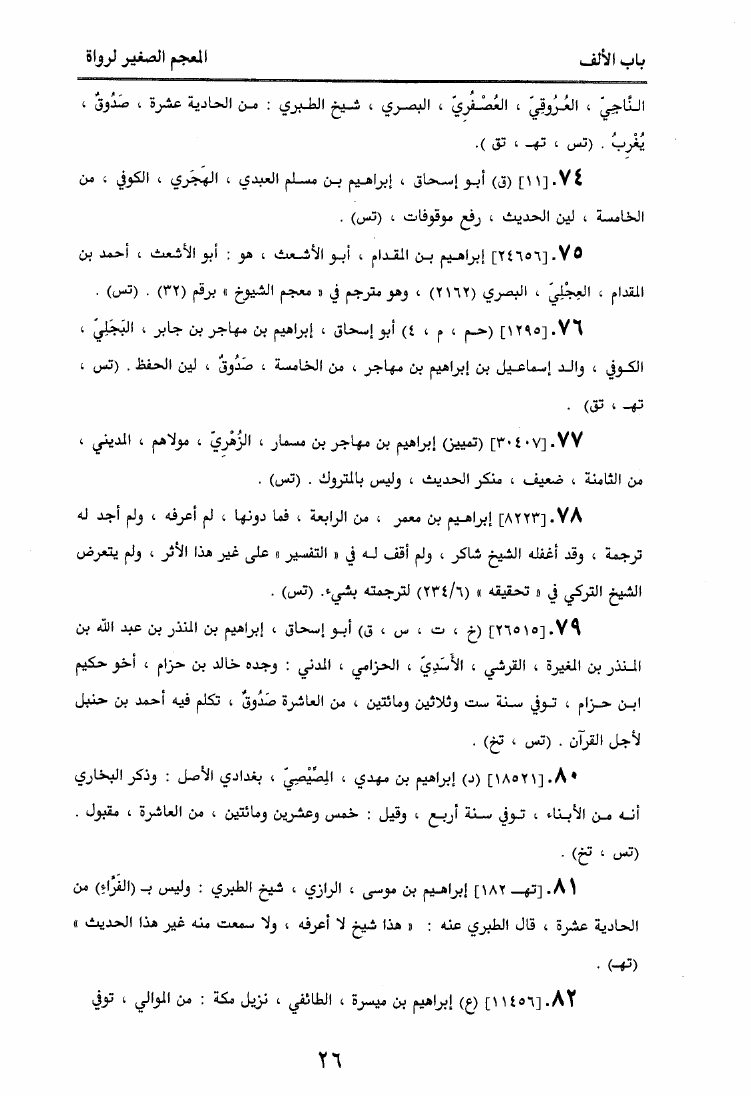 باب الألف
المعجم الصغير لرواة
النَّاجِيّ ، العُرُوقِيّ ، العُصْفُرِيّ ، البصري ، شيخ الطبري : من الحادية عشرة ، صَدُوقٌ ،
يُغْرِبُ . (تس ، تهـ ، تق ).
٧٤. [١١] (ق) أبو إسحاق ، إبراهيم بن مسلم العبدي ، الهَجَري ، الكوفي ، من
الخامسة ، لين الحديث ، رفع موقوفات ، (تس) .
٧٥. [٢٤٦٥٦] إبراهيم بن المقدام ، أبو الأشعث ، هو : أبو الأشعث ، أحمد بن
المقدام ، العِجْلِيّ ، البصري (٢١٦٢) ، وهو مترجم في « معجم الشيوخ » برقم (٣٢) . (تس) .
٧٦. [١٢٩٥] (حم ، م ، ٤) أبو إسحاق ، إبراهيم بن مهاجر بن جابر ، البَجَلِيّ ،
الكوفي ، والد إسماعيل بن إبراهيم بن مهاجر ، من الخامسة ، صَدُوقٌ ، لين الحفظ . (تس ،
تهـ ، تق) .
٧٧. [٣٠٤٠٧] (تمييز) إبراهيم بن مهاجر بن مسمار ، الزُهْرِيّ ، مولاهم ، المديني ،
من الثامنة ، ضعيف ، منكر الحديث ، وليس بالمتروك . (تس) .
٧٨. [٨٢٢٣] إبراهيم بن معمر ، من الرابعة ، فما دونها ، لم أعرفه ، ولم أجد له
ترجمة ، وقد أغفله الشيخ شاكر ، ولم أقف له في « التفسير » على غير هذا الأثر ، ولم يتعرض
الشيخ التركي في « تحقيقه » (٢٣٤/٦) لترجمته بشيء. (تس) .
٧٩. [٢٦٥١٥] (خ ، ت ، س ، ق) أبو إسحاق ، إبراهيم بن المنذر بن عبد الله بن
المنذر بن المغيرة ، القرشي ، الأَسَدِيّ ، الحزامي ، المدني : وجده خالد بن حزام ، أخو حكيم
ابن حزام ، توفي سنة ست وثلاثين ومائتين ، من العاشرة صَدُوقٌ ، تكلم فيه أحمد بن حنبل
لأجل القرآن . (تس ، تخ) .
٨٠. [١٨٥٢١] (د) إبراهيم بن مهدي ، المِصِّيْصِيّ ، بغدادي الأصل : وذكر البخاري
أنه من الأبناء ، توفي سنة أربع ، وقيل : خمس وعشرين ومائتين ، من العاشرة ، مقبول .
(تس ، تخ) .
٨١. [تهـ ١٨٢] إبراهيم بن موسى ، الرازي ، شيخ الطبري : وليس بـ (الفَرَّاءِ) من
الحادية عشرة ، قال الطبري عنه : « هذا شيخ لا أعرفه ، ولا سمعت منه غير هذا الحديث »
(تهـ) .
٨٢. [١١٤٥٦] (ع) إبراهيم بن ميسرة ، الطائفي ، نزيل مكة : من الموالي ، توفي
٢٦